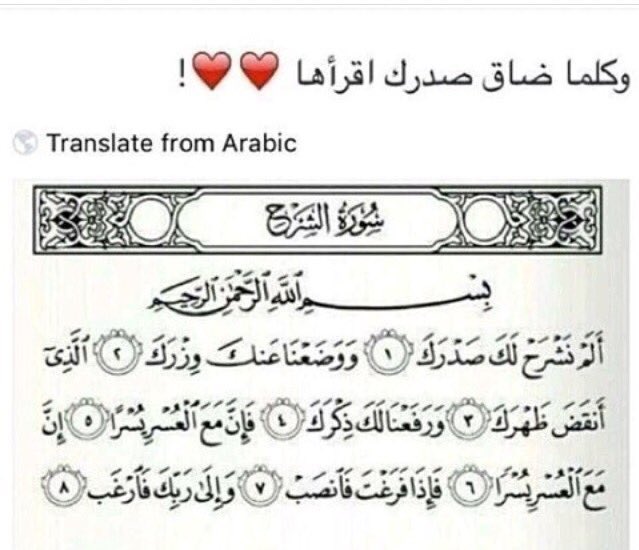 وكلما ضاق صدرك اقرأها ❤️❤️!
Translate from Arabic
سُورَةُ الشَّرْحِ
بِسْمِ اللَّهِ الرَّحْمَٰنِ الرَّحِيمِ
أَلَمْ نَشْرَحْ لَكَ صَدْرَكَ ١ وَوَضَعْنَا عَنكَ وِزْرَكَ ٢ الَّذِي
أَنقَضَ ظَهْرَكَ ٣ وَرَفَعْنَا لَكَ ذِكْرَكَ ٤ فَإِنَّ مَعَ الْعُسْرِ يُسْرًا ٥ إِنَّ
مَعَ الْعُسْرِ يُسْرًا ٦ فَإِذَا فَرَغْتَ فَانصَبْ ٧ وَإِلَىٰ رَبِّكَ فَارْغَب ٨